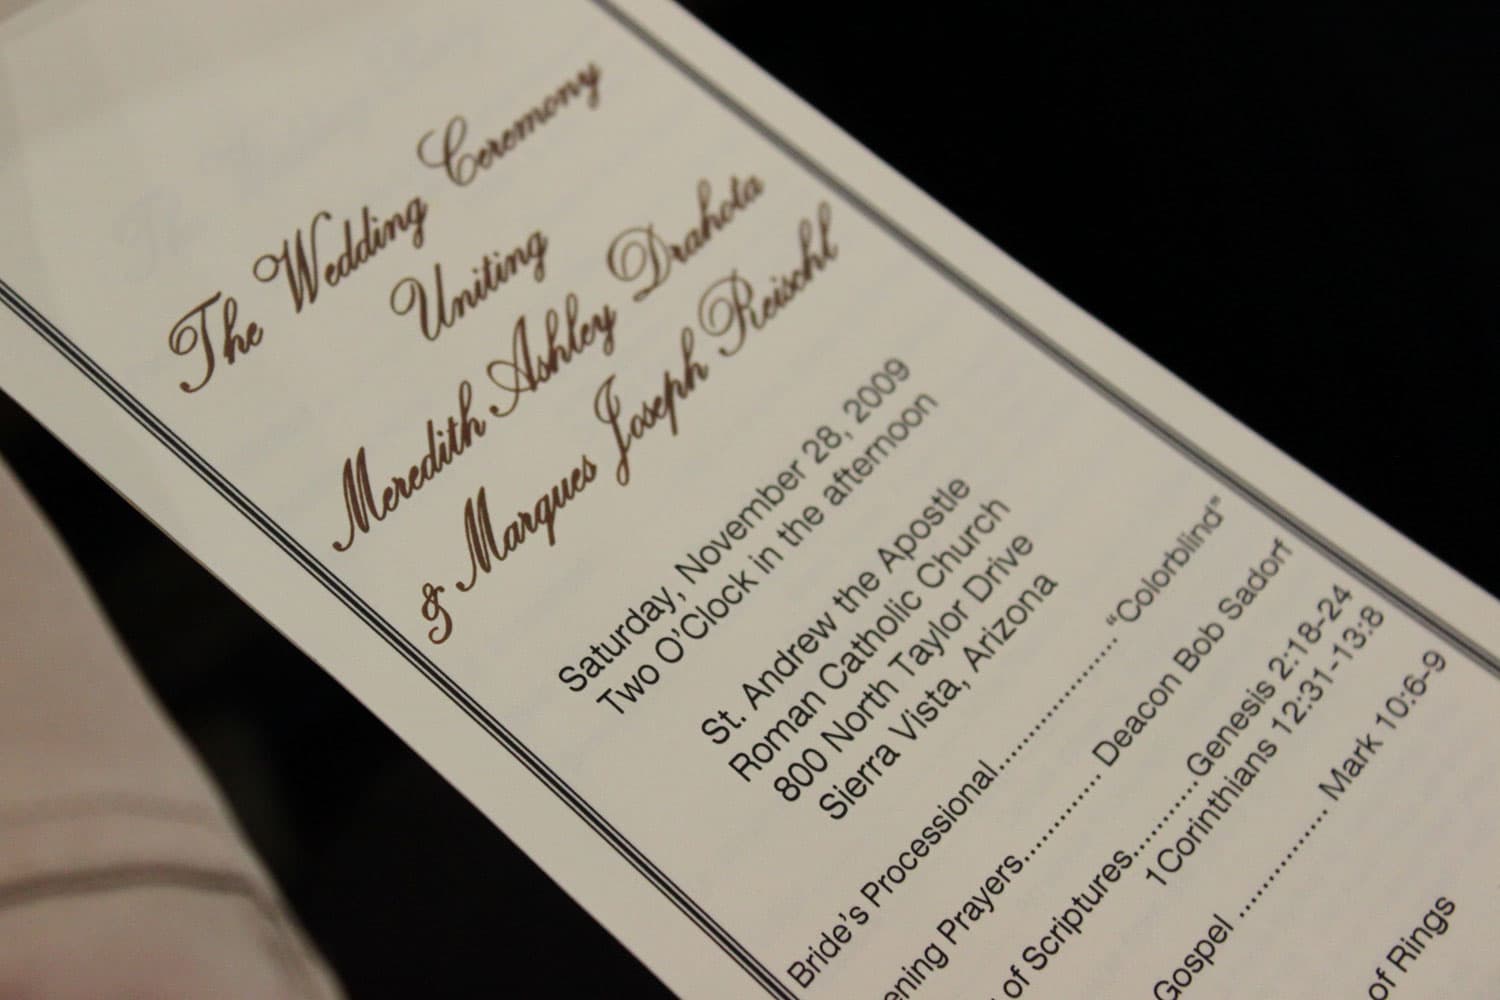 The Wedding Ceremony
Uniting
Meredith Ashley Drahota
& Marques Joseph Reischl
Saturday, November 28, 2009
Two O'Clock in the afternoon
St. Andrew the Apostle
Roman Catholic Church
800 North Taylor Drive
Sierra Vista, Arizona
Bride's Processional.................... "Colorblind"
ening Prayers........... Deacon Bob Sadorf
of Scriptures..........Genesis 2:18-24
1Corinthians 12:31-13:8
Gospel ................ Mark 10:6-9
of Rings